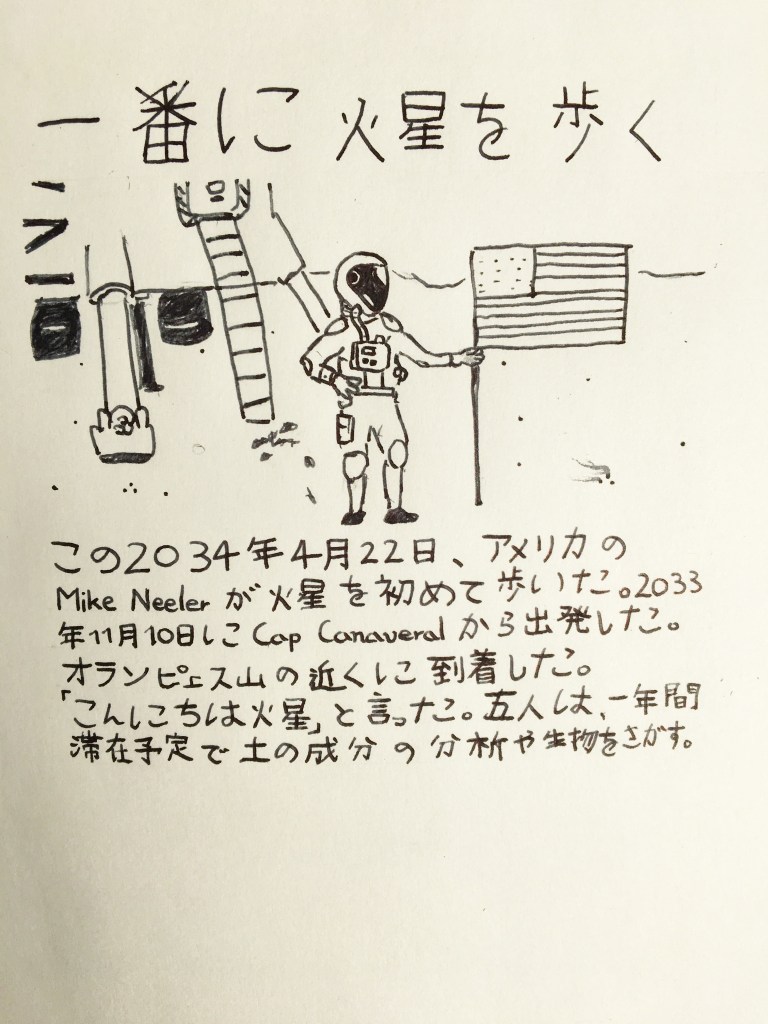 一番に火星を歩く
この2034年4月22日、アメリカの
Mike Neelerが火星を初めて歩いた。2033
年11月10日にCap Canaveralから出発した。
オランピェス山の近くに到着した。
「こんにちは火星」と言った。五人は、一年間
滞在予定で土の成分の分析や生物をさがす。